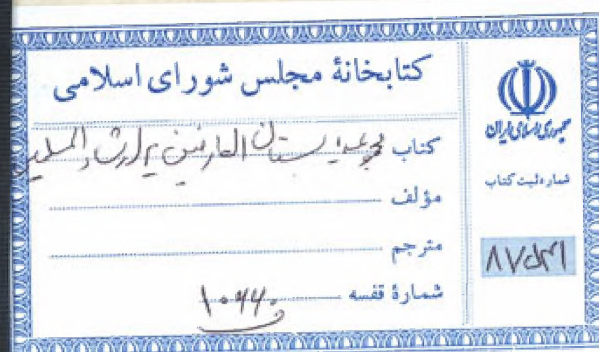 کتابخانهٔ مجلس شورای اسلامی
کتاب مجموعه: بستان العارفین
مؤلف
مترجم
شمارهٔ قفسه ۱۰۶۶۰
جمهوری اسلامی ایران
شماره ثبت کتاب